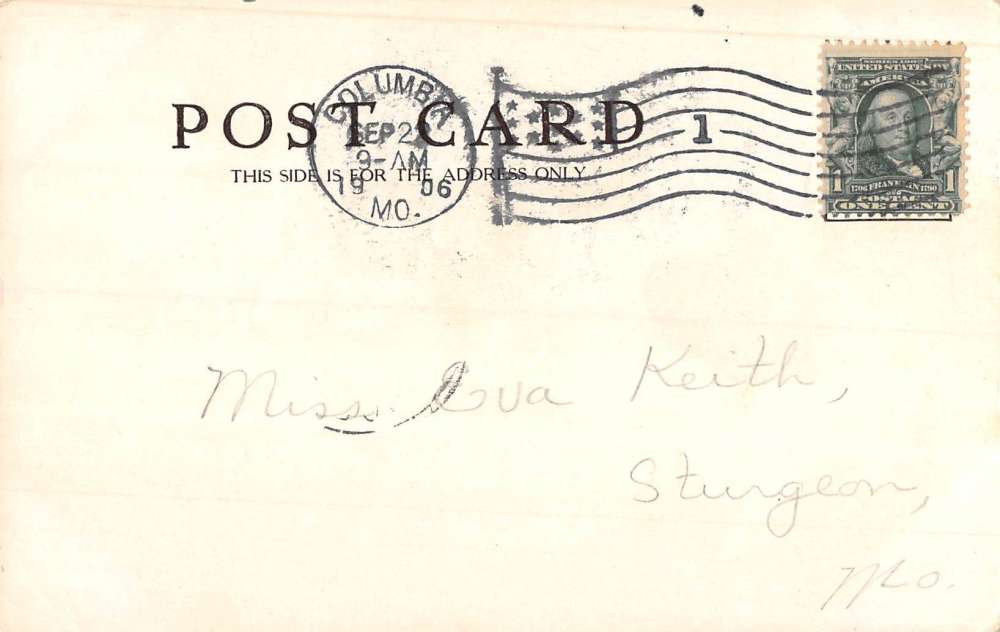 POST CARD
THIS SIDE IS FOR THE ADDRESS ONLY
COLUMBIA
SEP 2
9-AM
1906
MO.
1
SERIES 1902
UNITED STATES OF
AMERICA
1706 FRANKLIN 1790
1 1
POSTAGE
ONE CENT
Miss Eva Keith,
Sturgeon,
Mo.